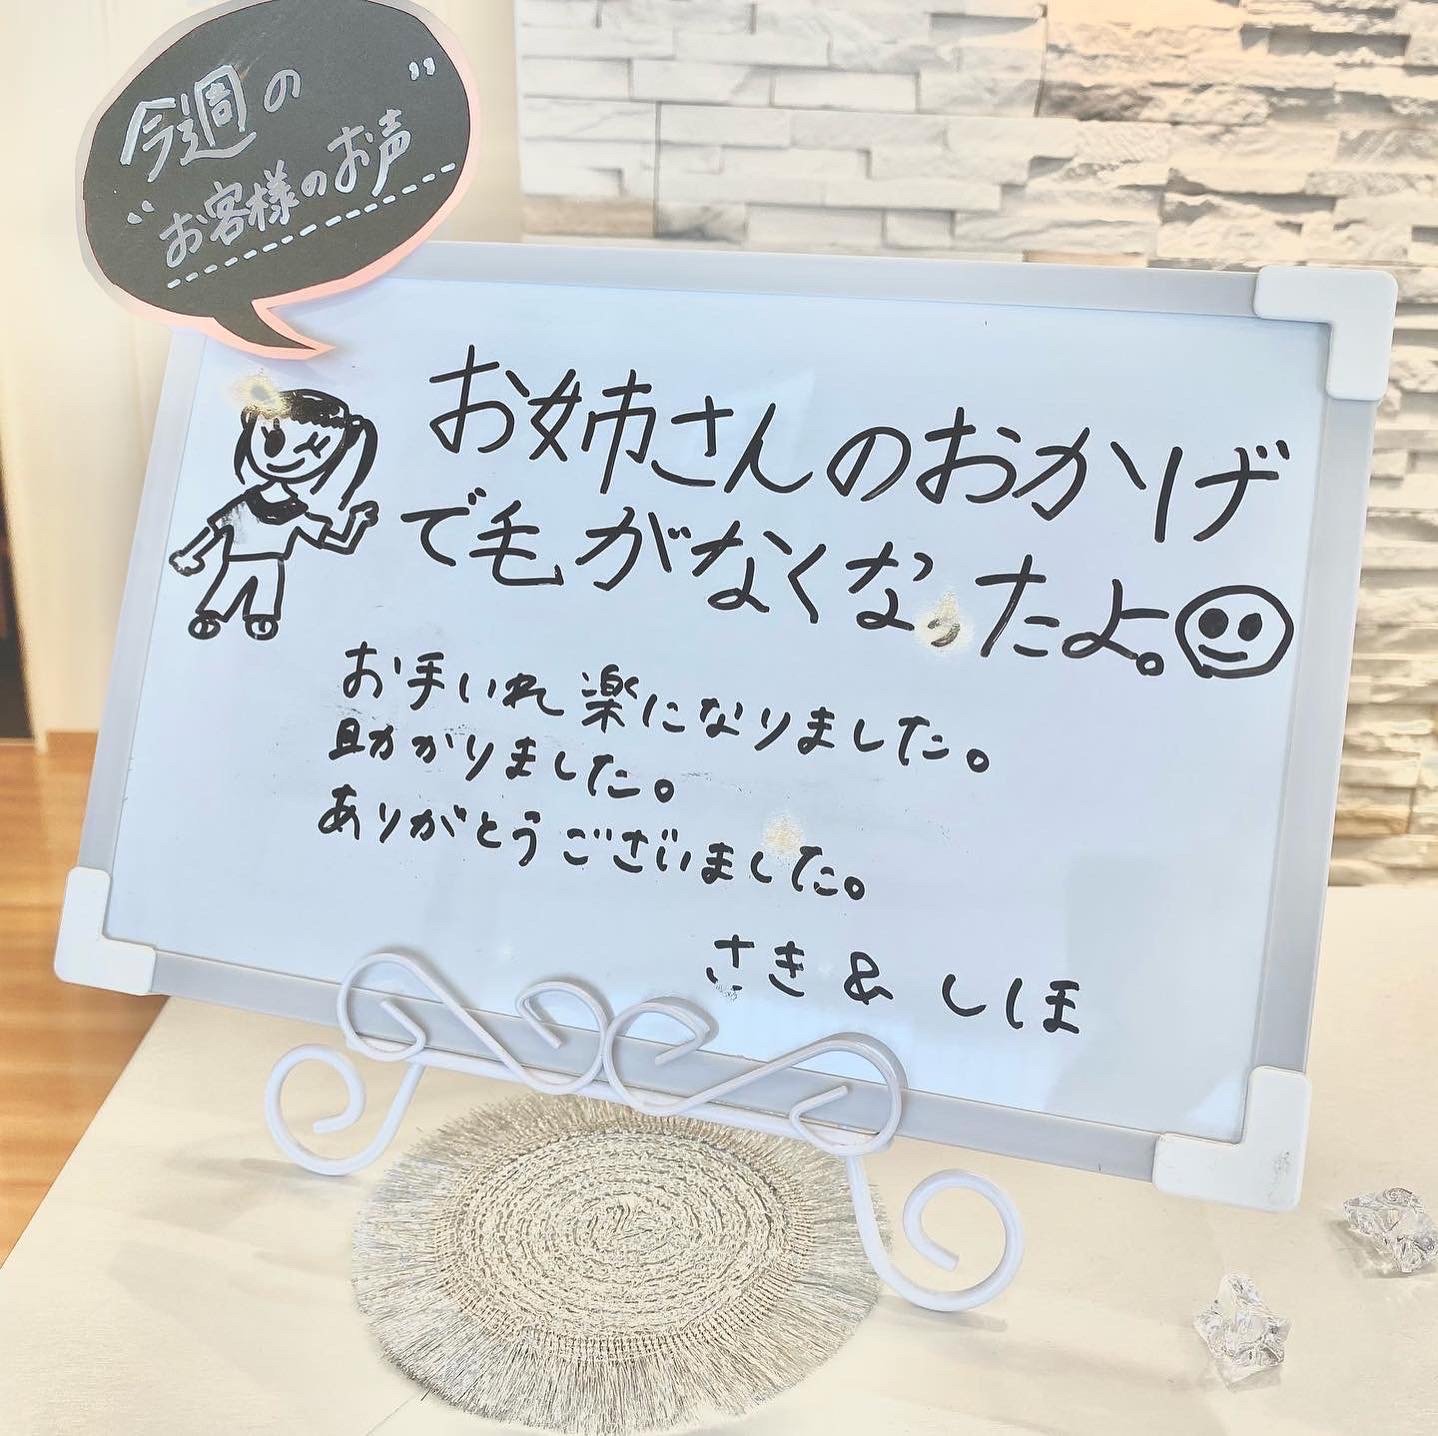 今週の
"お客様のお声"
お姉さんのおかげ
で毛がなくなったよ。
お手いれ楽になりました。
助かりました。
ありがとうございました。
さき & しほ